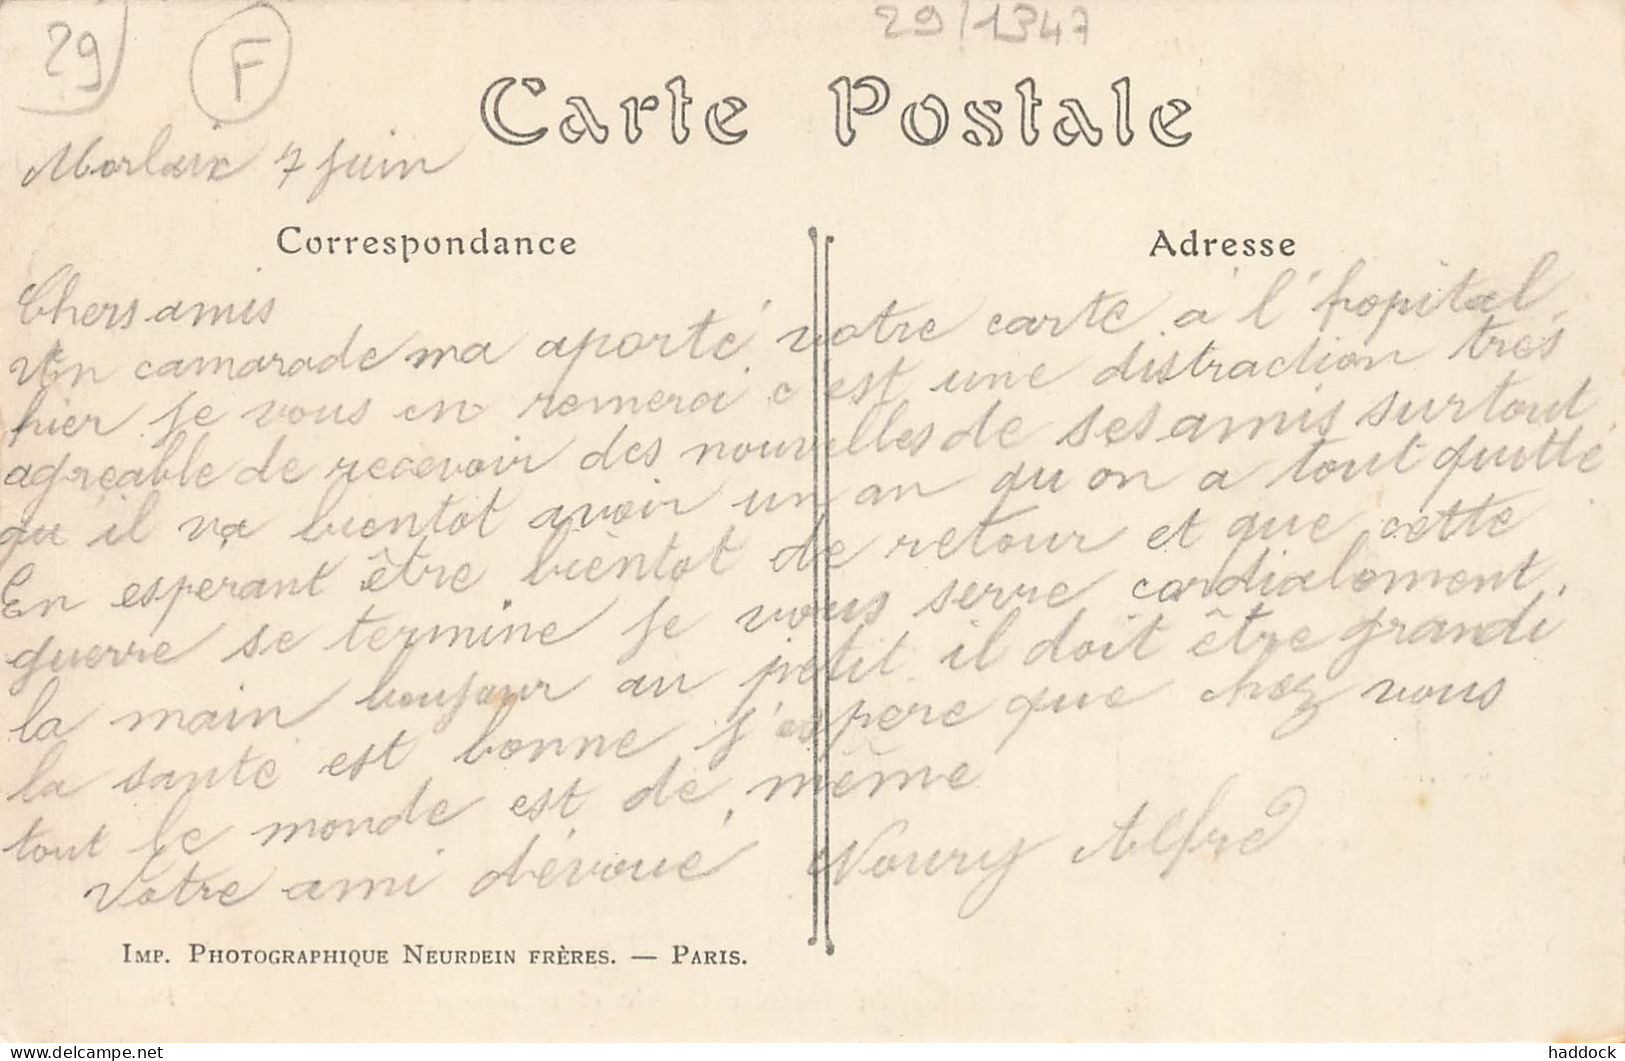 29
F
29/1347
Carte Postale
Morlaix 7 juin
Correspondance
Adresse
Chers amis
Un camarade ma aporté votre carte a l'hopital
hier je vous en remerci c est une distraction très
agreable de recevoir des nouvelles de ses amis surtout
qu il va bientot avoir un an qu on a tout quitté
En esperant être bientot de retour et que cette
guerre se termine je vous serre cordialement
la main boujour au petit il doit être grandi
la santé est bonne j'espere que chez vous
tout le monde est de même
Votre ami dévoué Noury Alfred
Imp. Photographique Neurdein frères. — Paris.
delcampe.net
haddock